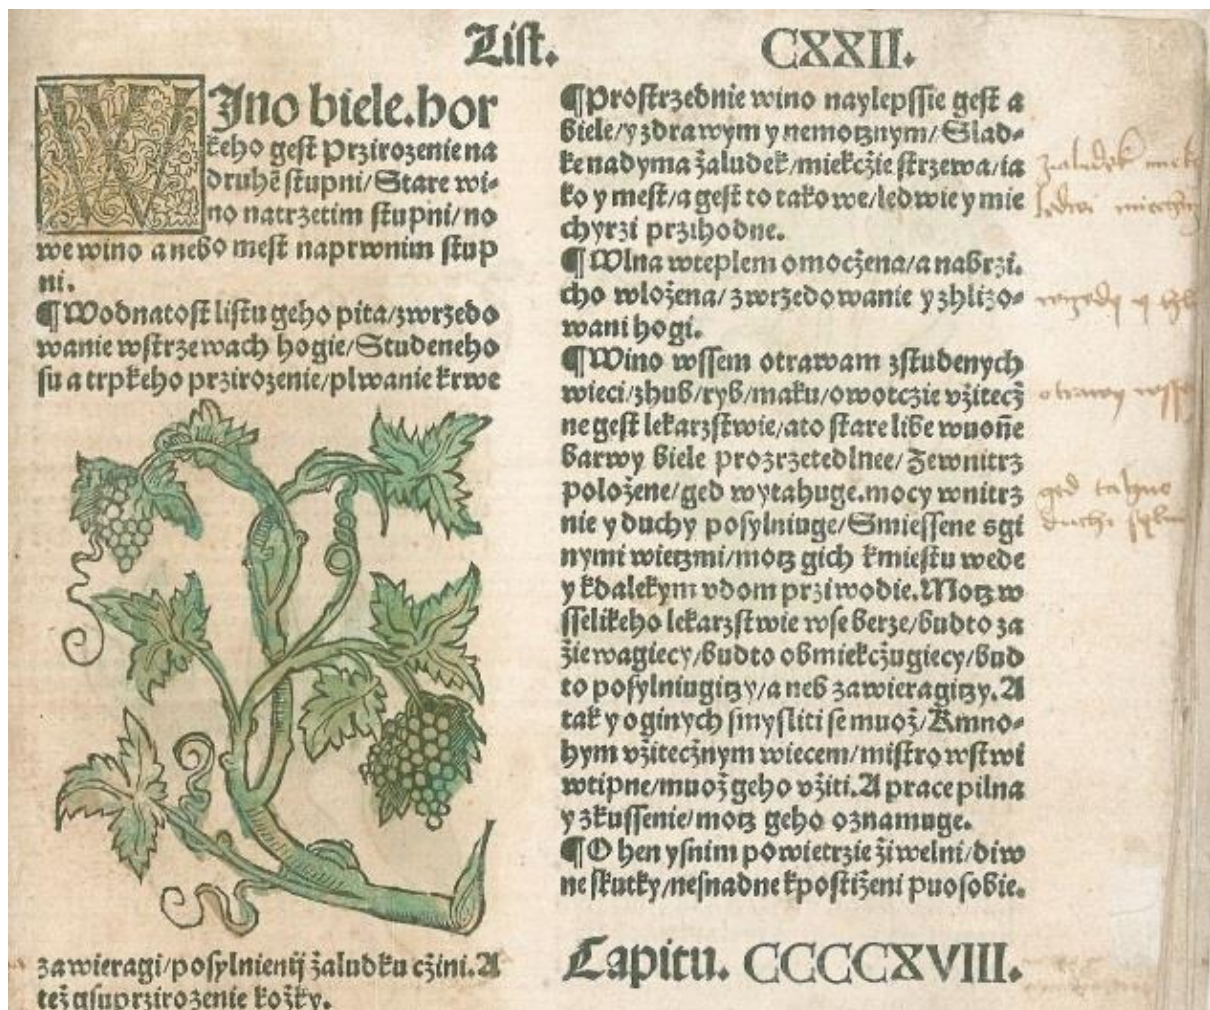 List. CXXII.
WJno biele. hor
keho gest Przirozenie na
druhē stupni/Stare wi-
no natrzetim stupni/no
we wino anebo mest naprwnim stup
ni.
¶ Wodnatost listu geho pita/zwrzedo
wanie wstrzewach hogie/Studeneho
su a trpkeho przirozenie/plwanie krwe
zawieragi/posylnienij žaludku cžini. A
tež gsuprzirozenie kožky.
¶ Prostrzednie wino naylepssie gest a
biele/y zdrawym y nemotznym/Slad-
ke nadyma žaludek/miekcžie strzewa/ia
ko y mest/a gest to takowe/ledwie y mie
chyrzi przihodne.
¶ Wlna wteplem omocžena/a nabrzi.
cho wložena/zwrzedowanie y zhlizo-
wani hogi.
¶ Wino wssem otrawam zstudenych
wieci/zhub/ryb/maku/owotczie vžitecž
ne gest lekarzstwie/ato stare libe wuoñe
barwy biele prozrzetedlnee/Zewnitrz
položene/ged wytahuge. mocy wnitrz
nie y duchy posylniuge/Smiessene sgi
nymi wietzmi/motz gich kmiestu wede
y kdalekym vdom przi wodie. Motz w
sselikeho lekarzstwie wse berze/budto za
žiewagiecy/budto obmiekcžugiecy/bud
to posylniugitzy/a neb zawieragitzy. A
tak y oginych smysliti se muož/Kmno-
hym vžitecžnym wiecem/mistrowstwi
wtipne/muož geho vžiti. A prace pilna
y zkussenie/motz geho oznamuge.
¶ O hen ysnim powietrzie žiwelni/diw
ne skutky/nesnadne kpostiženi puosobie.
Capitu. CCCCXVIII.
zaludek
otrawy
ged tahne
duchi